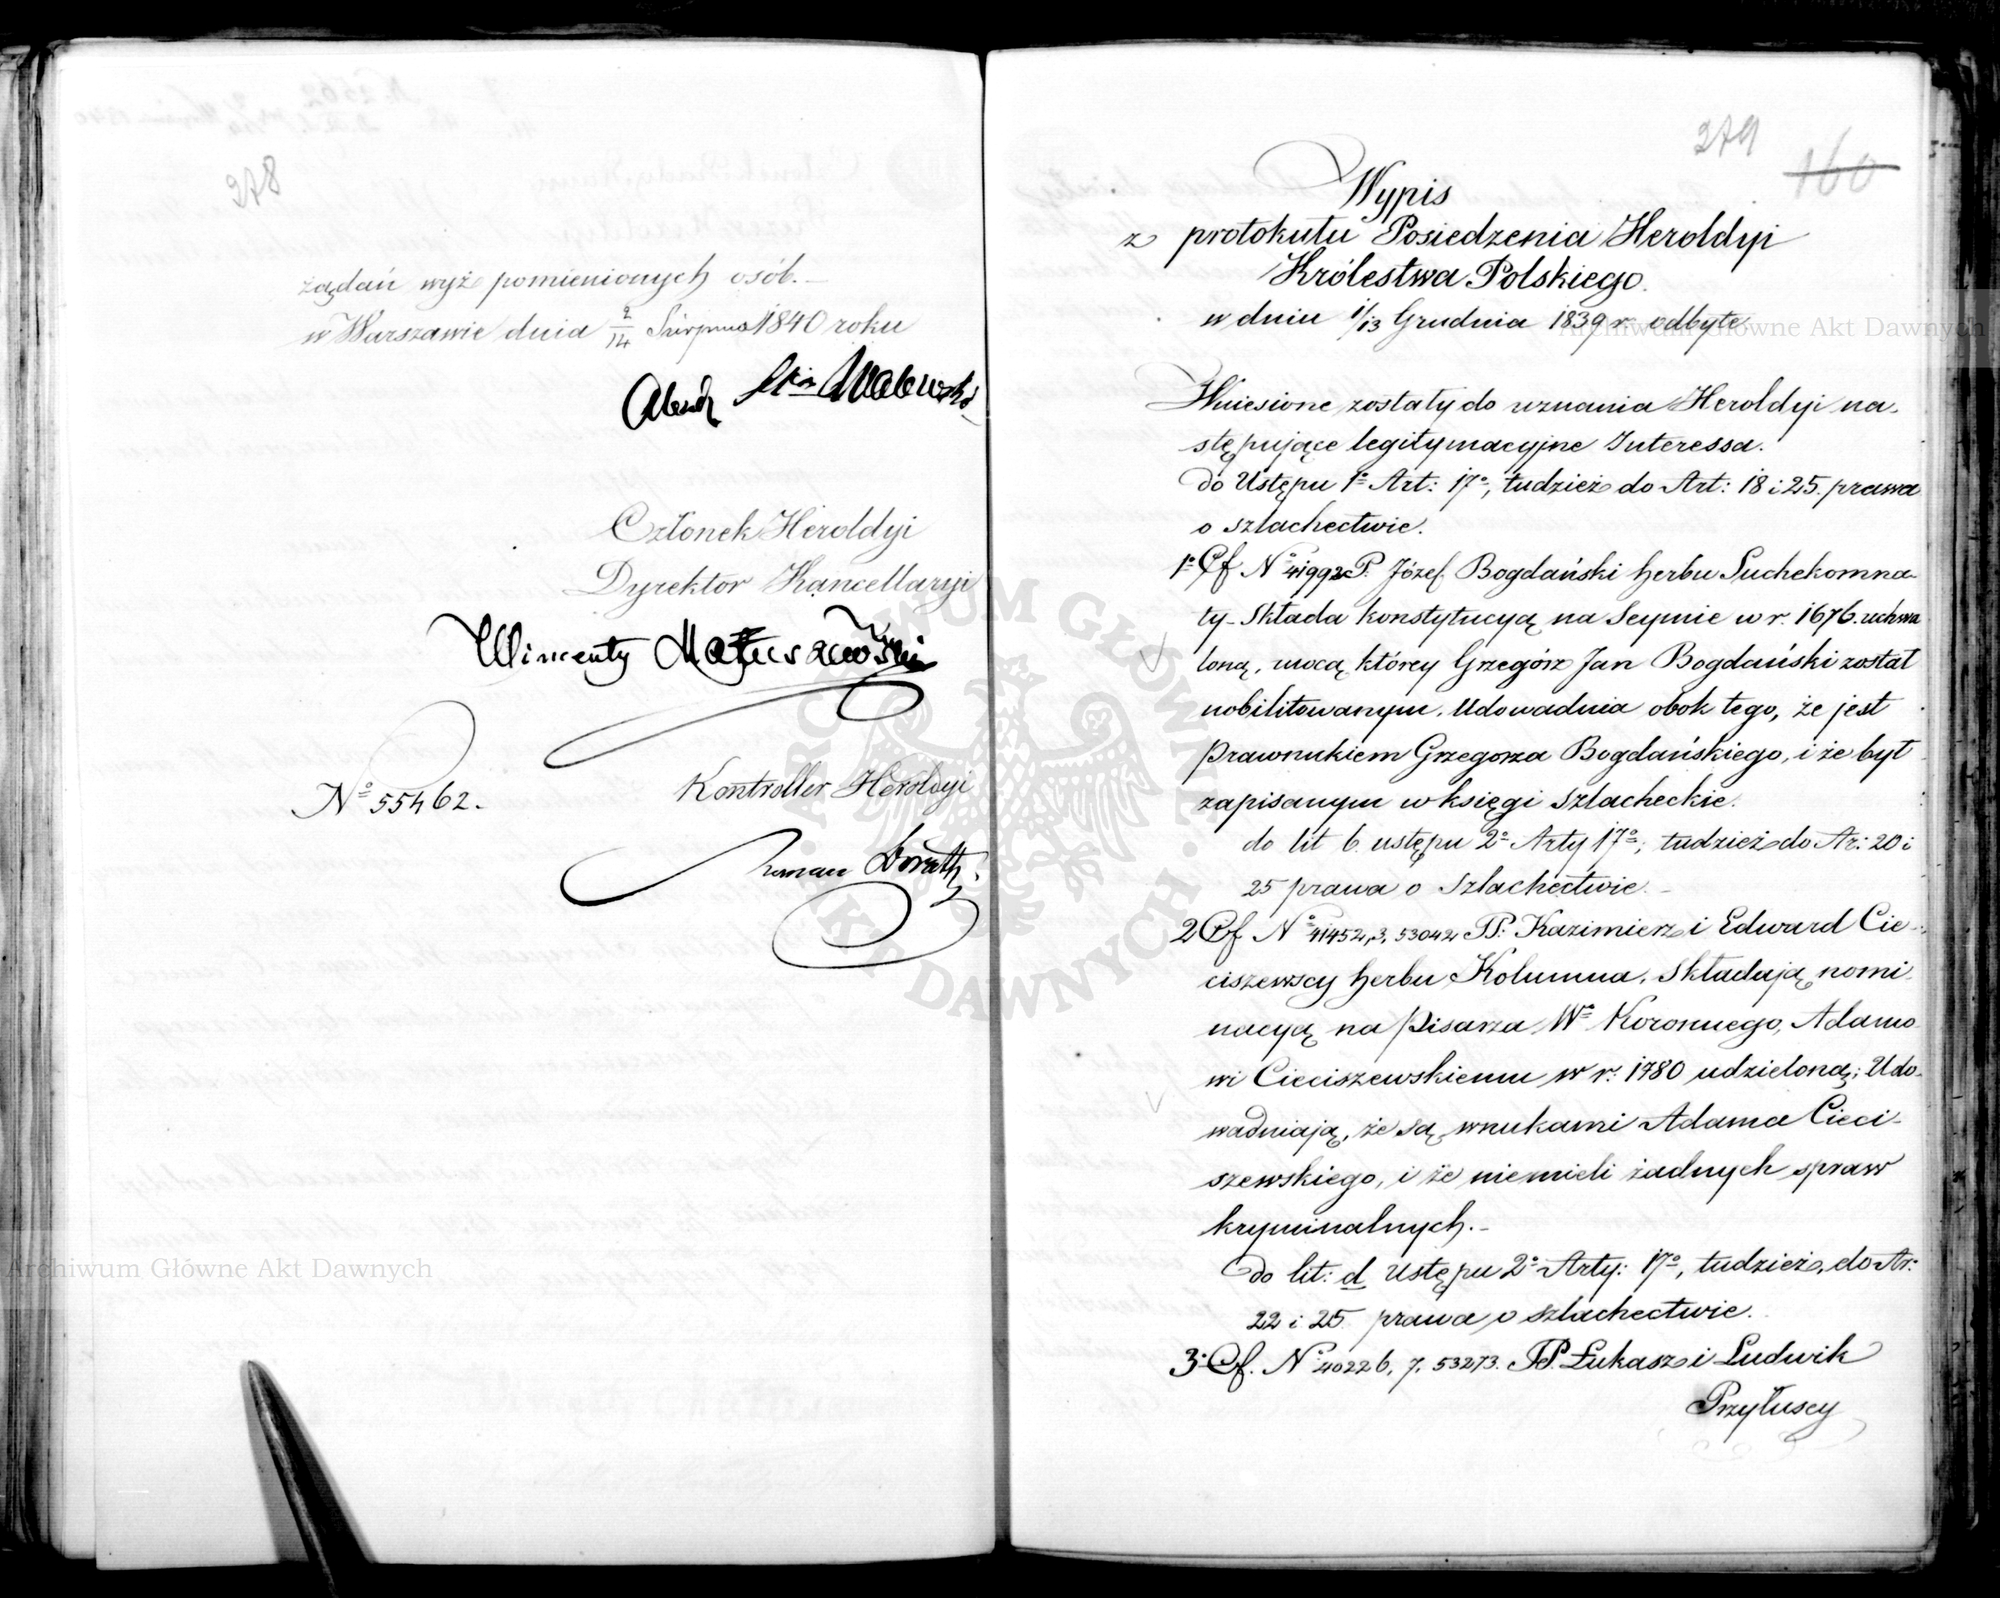 278
żądań wyż pomienionych osób.
w Warszawie dnia 2/14 Sierpnia 1840 roku
Walewski
Członek Heroldyi
Dyrektor Kancellaryi
Wincenty Matuszewski
Kontroller Heroldyi
No 55462.
279
160
Wypis
z protokułu Posiedzenia Heroldyi
Królestwa Polskiego.
w dniu 1/13 Grudnia 1839 r. odbyte
Wniesione zostały do uznania Heroldyi na-
stępujące legitymacyjne Interessa.
do Ustępu 1o Art: 17o, tudzież do Art: 18 i 25. prawa
o szlachectwie.
1o No 41992 P. Józef Bogdański herbu Suchekomna-
ty Składa konstytucyą na Seymie w r. 1676. uchwa
loną, mocą którey Grzegórz Jan Bogdański został
nobilitowanym. Udowadnia obok tego, że jest
Prawnukiem Grzegorza Bogdańskiego, i że był
zapisanym w księgi szlacheckie.
do lit b. ustępu 2o Arty 17o, tudzież do Ar: 20 i
25 prawa o szlachectwie.
2 No 41452, 3, 53042 PP. Kazimierz i Edward Cie-
ciszewscy herbu Kolumna, Składają nomi-
nacyą na Pisarza Wo Koronnego, Adamo
wi Cieciszewskiemu w r. 1780 udzieloną; Udo-
wadniają, że są wnukami Adama Cieci-
szewskiego, i że niemieli żadnych spraw
kryminalnych.
Do lit: d Ustępu 2o Arty: 17o, tudzież do Ar:
22 i 25 prawa o szlachectwie.
3o No 40226, 7, 53273. PP. Łukasz i Ludwik
Przyłuscy
Archiwum Główne Akt Dawnych
Archiwum Główne Akt Dawnych
ARCHIWUM GŁÓWNE · AKT DAWNYCH ·